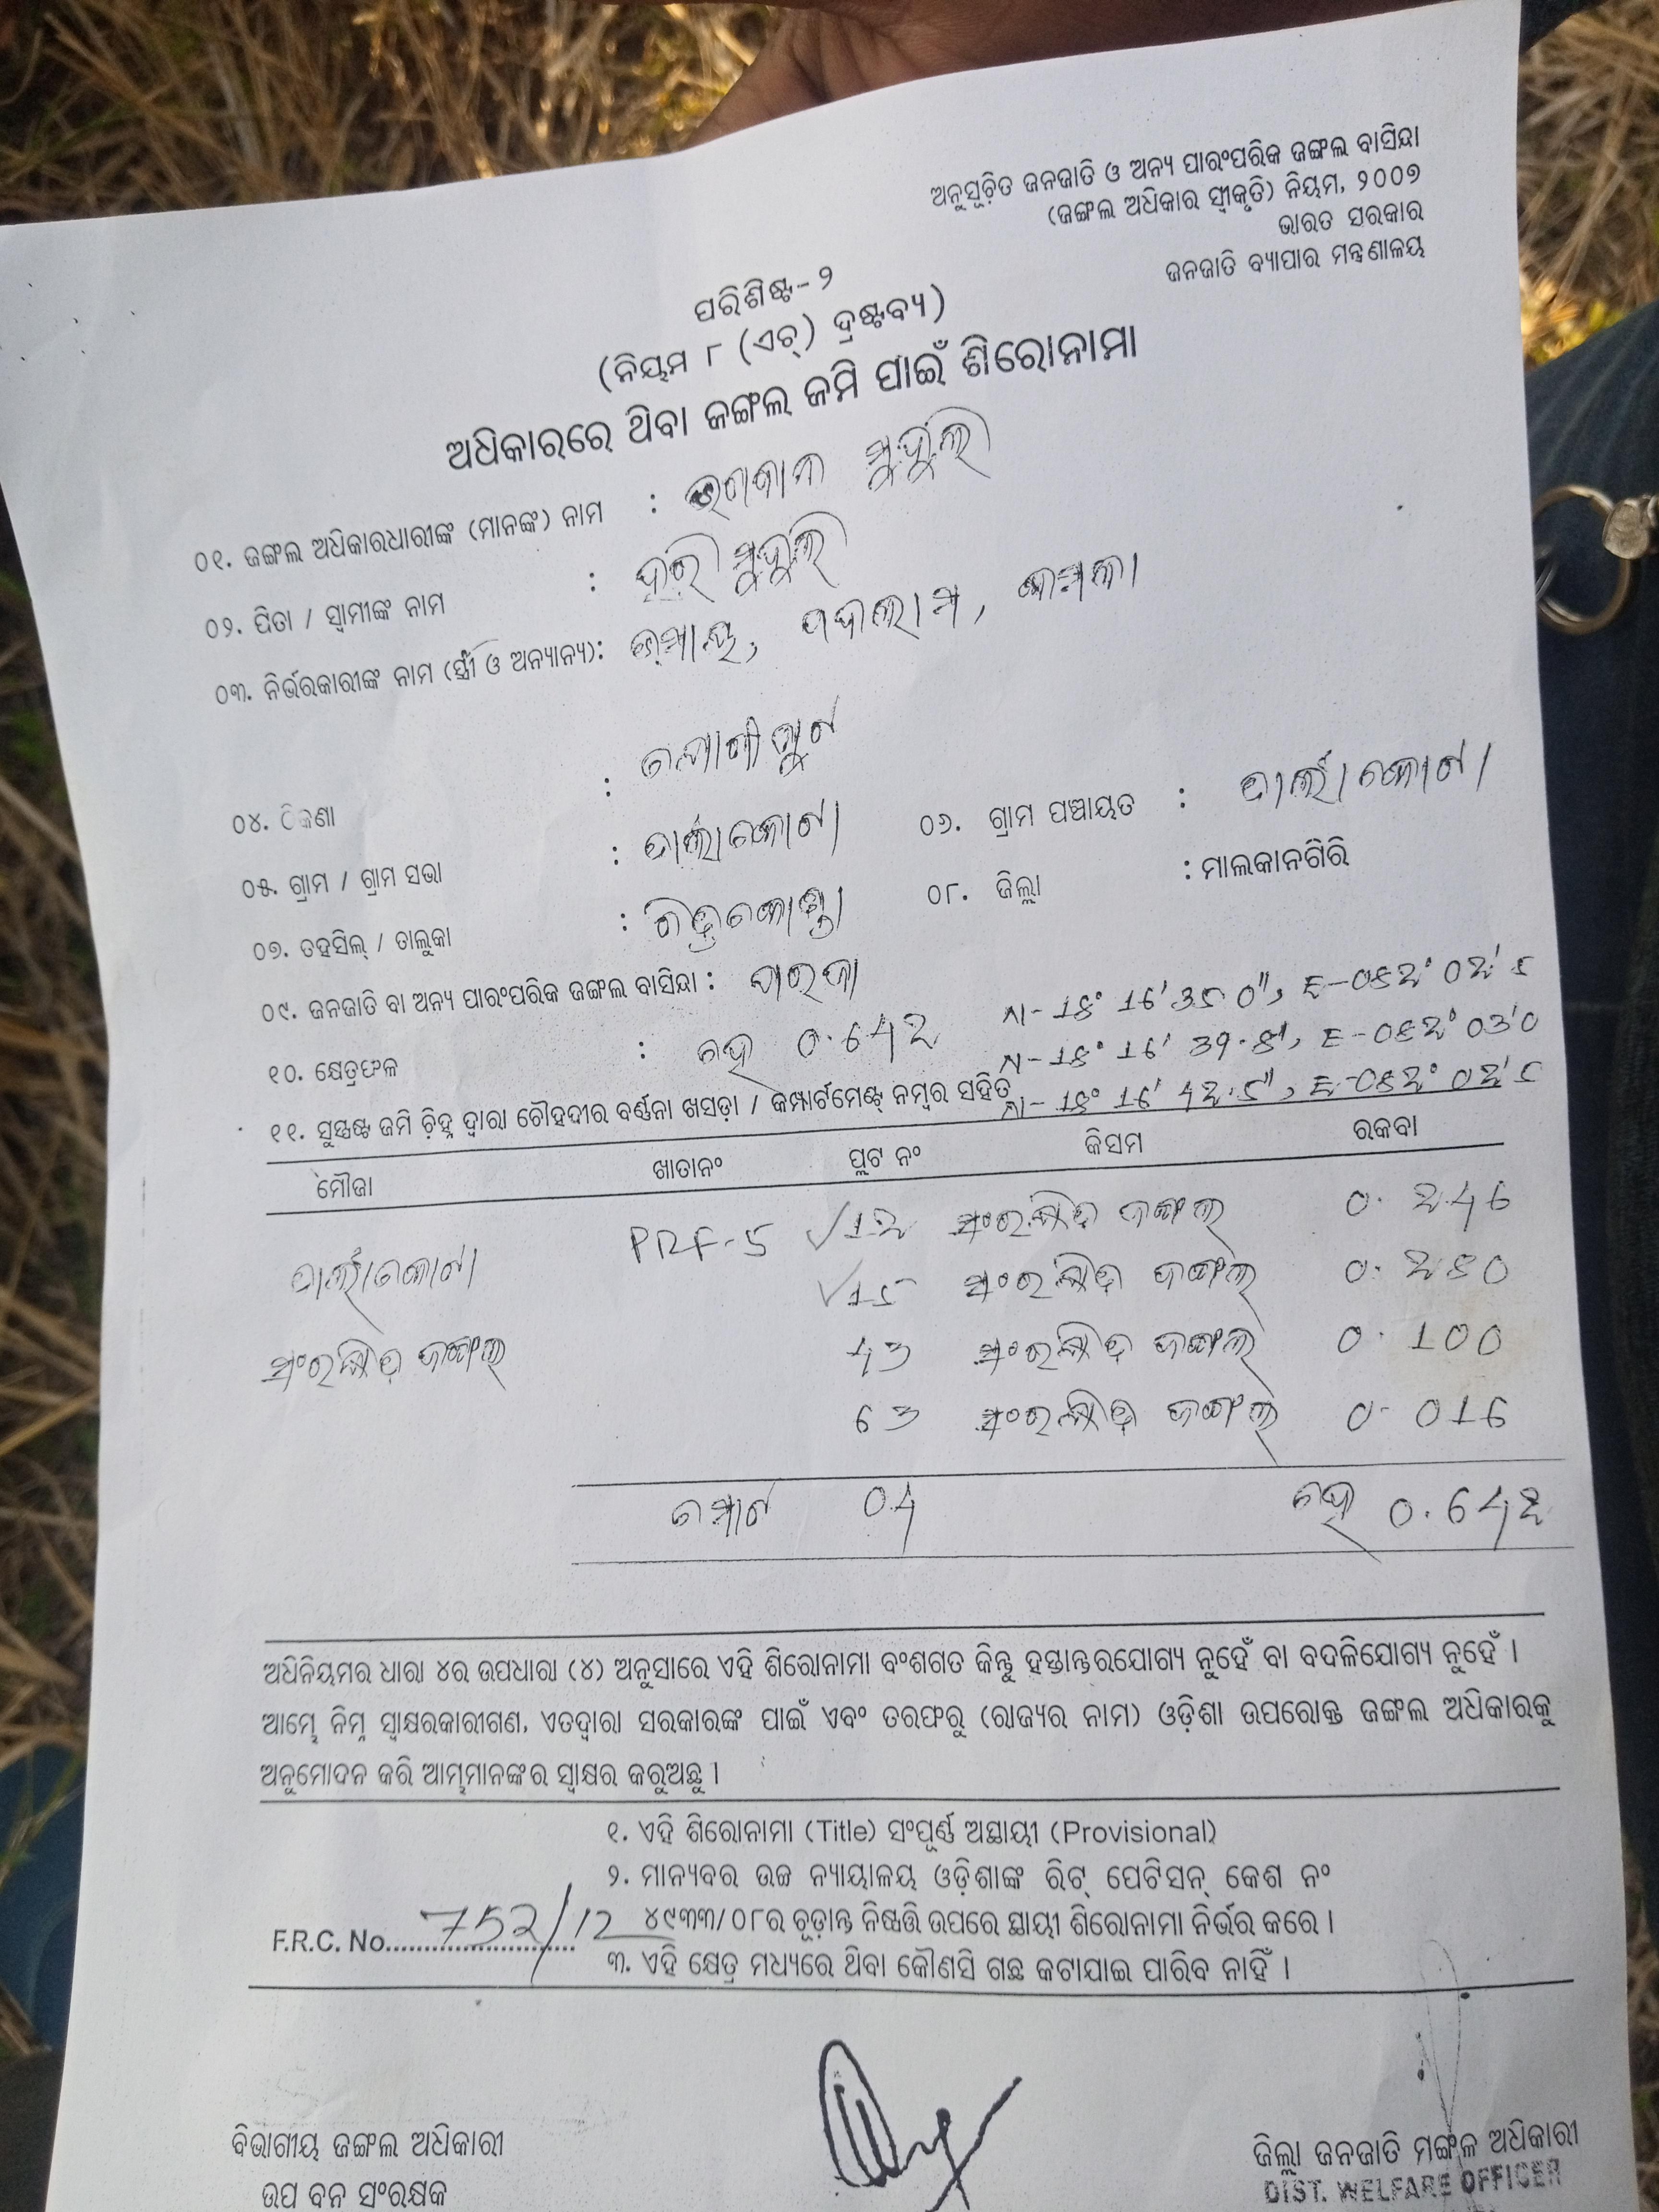 ଅନୁସୂଚିତ ଜନଜାତି ଓ ଅନ୍ୟ ପାରଂପରିକ ଜଙ୍ଗଲ ବାସିନ୍ଦା
(ଜଙ୍ଗଲ ଅଧିକାର ସ୍ୱୀକୃତି) ନିୟମ, ୨୦୦୭
ଭାରତ ସରକାର
ଜନଜାତି ବ୍ୟାପାର ମନ୍ତ୍ରଣାଳୟ
ପରିଶିଷ୍ଟ-୨
(ନିୟମ ୮ (ଏଚ୍) ଦ୍ରଷ୍ଟବ୍ୟ)
ଅଧିକାରରେ ଥିବା ଜଙ୍ଗଲ ଜମି ପାଇଁ ଶିରୋନାମା
୦୧. ଜଙ୍ଗଲ ଅଧିକାରଧାରୀଙ୍କ (ମାନଙ୍କ) ନାମ : ମୁଦୁଲି
୦୨. ପିତା / ସ୍ୱାମୀଙ୍କ ନାମ : ହରି ମୁଦୁଲି
୦୩. ନିର୍ଭରକାରୀଙ୍କ ନାମ (ସ୍ତ୍ରୀ ଓ ଅନ୍ୟାନ୍ୟ):
୦୪. ଠିକଣା :
୦୫. ଗ୍ରାମ / ଗ୍ରାମ ସଭା : ୦୬. ଗ୍ରାମ ପଞ୍ଚାୟତ :
୦୭. ତହସିଲ୍ / ତାଲୁକା : ୦୮. ଜିଲ୍ଲା : ମାଲକାନଗିରି
୦୯. ଜନଜାତି ବା ଅନ୍ୟ ପାରଂପରିକ ଜଙ୍ଗଲ ବାସିନ୍ଦା : ପରଜା
୧୦. କ୍ଷେତ୍ରଫଳ : ହେ 0.642
N-18° 16' 35 0", E-082° 02'
N-18° 16' 39.8", E-082° 03'0
N-18° 16' 42.5", E-082° 02'
୧୧. ସୁସ୍ପଷ୍ଟ ଜମି ଚିହ୍ନ ଦ୍ୱାରା ଚୌହଦୀର ବର୍ଣ୍ଣନା ଖସଡ଼ା / କମ୍ପାର୍ଟମେଣ୍ଟ୍ ନମ୍ବର ସହିତ
ମୌଜା ଖାତାନଂ ପ୍ଲଟ ନଂ କିସମ ରକବା
PRF-5 12 ସଂରକ୍ଷିତ ଜଙ୍ଗଲ 0.246
15 ସଂରକ୍ଷିତ ଜଙ୍ଗଲ 0.280
ସଂରକ୍ଷିତ ଜଙ୍ଗଲ 43 ସଂରକ୍ଷିତ ଜଙ୍ଗଲ 0.100
63 ସଂରକ୍ଷିତ ଜଙ୍ଗଲ 0.016
ମୋଟ 04 ହେ 0.642
ଅଧିନିୟମର ଧାରା ୪ର ଉପଧାରା (୪) ଅନୁସାରେ ଏହି ଶିରୋନାମା ବଂଶଗତ କିନ୍ତୁ ହସ୍ତାନ୍ତରଯୋଗ୍ୟ ନୁହେଁ ବା ବଦଳିଯୋଗ୍ୟ ନୁହେଁ ।
ଆମ୍ଭେ ନିମ୍ନ ସ୍ୱାକ୍ଷରକାରୀଗଣ, ଏତଦ୍ୱାରା ସରକାରଙ୍କ ପାଇଁ ଏବଂ ତରଫରୁ (ରାଜ୍ୟର ନାମ) ଓଡ଼ିଶା ଉପରୋକ୍ତ ଜଙ୍ଗଲ ଅଧିକାରକୁ
ଅନୁମୋଦନ କରି ଆମ୍ଭମାନଙ୍କର ସ୍ୱାକ୍ଷର କରୁଅଛୁ ।
୧. ଏହି ଶିରୋନାମା (Title) ସଂପୂର୍ଣ୍ଣ ଅସ୍ଥାୟୀ (Provisional)
୨. ମାନ୍ୟବର ଉଚ୍ଚ ନ୍ୟାୟାଳୟ ଓଡ଼ିଶାଙ୍କ ରିଟ୍ ପେଟିସନ୍ କେଶ ନଂ
୪୯୩୩/୦୮ର ଚୂଡ଼ାନ୍ତ ନିଷ୍ପତ୍ତି ଉପରେ ସ୍ଥାୟୀ ଶିରୋନାମା ନିର୍ଭର କରେ ।
F.R.C. No. 752/12
୩. ଏହି କ୍ଷେତ୍ର ମଧ୍ୟରେ ଥିବା କୌଣସି ଗଛ କଟାଯାଇ ପାରିବ ନାହିଁ ।
ବିଭାଗୀୟ ଜଙ୍ଗଲ ଅଧିକାରୀ
ଉପ ବନ ସଂରକ୍ଷକ
ଜିଲ୍ଲା ଜନଜାତି ମଙ୍ଗଳ ଅଧିକାରୀ
DIST. WELFARE OFFICER